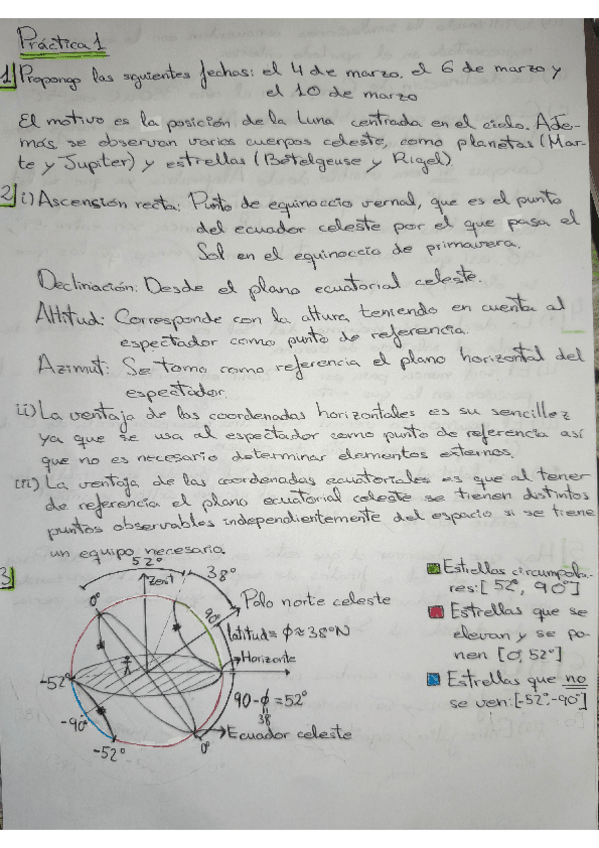 Práctica 1
1) Propongo las siguientes fechas: el 4 de marzo, el 6 de marzo y
el 10 de marzo
El motivo es la posición de la Luna centrada en el cielo. Ade-
más se observan varios cuerpos celeste, como planetas (Mar-
te y Jupiter) y estrellas (Betelgeuse y Rigel)
2) i) Ascensión recta: Punto de equinoccio vernal, que es el punto
del ecuador celeste por el que pasa el
Sol en el equinoccio de primavera.
Declinación: Desde el plano ecuatorial celeste.
Altitud: Corresponde con la altura, teniendo en cuenta al
espectador como punto de referencia.
Azimut: Se toma como referencia el plano horizontal del
espectador.
ii) La ventaja de las coordenadas horizontales es su sencillez
ya que se usa al espectador como punto de referencia así
que no es necesario determinar elementos externos.
iii) La ventaja de las coordenadas ecuatoriales es que al tener
de referencia el plano ecuatorial celeste se tienen distintos
puntos observables independientemente del espacio si se tiene
un equipo necesario.
3)
52°
38°
Zenit
0°
90°
Polo norte celeste
latitud = ϕ ≈ 38°N
Horizonte
-52°
90-ϕ = 52°
38
-90°
-52°
0°
Ecuador celeste
Estrellas circumpola-
res: [52°, 90°]
Estrellas que se
elevan y se po-
nen [0, 52°]
Estrellas que no
se ven: [-52°-90°]